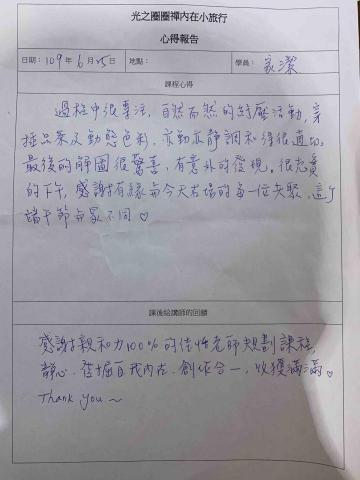 光之圈圈禪內在小旅行
心得報告
日期：109年6月25日 地點： 學員：家潔
課程心得
過程中很專注，自然而然的紓壓活動，穿
插品茶及動態色彩，亦動亦靜調和得很適切。
最後的解圖很驚喜，有意外的發現。很充實
的下午，感謝有緣與今天在場的每一位共聚，這個
端午節與眾不同♡
課後給講師的回饋
感謝親和力100%的佳怡老師規劃課程，
靜心、挖掘自我內在、創作合一，收獲滿滿♡
Thank you～